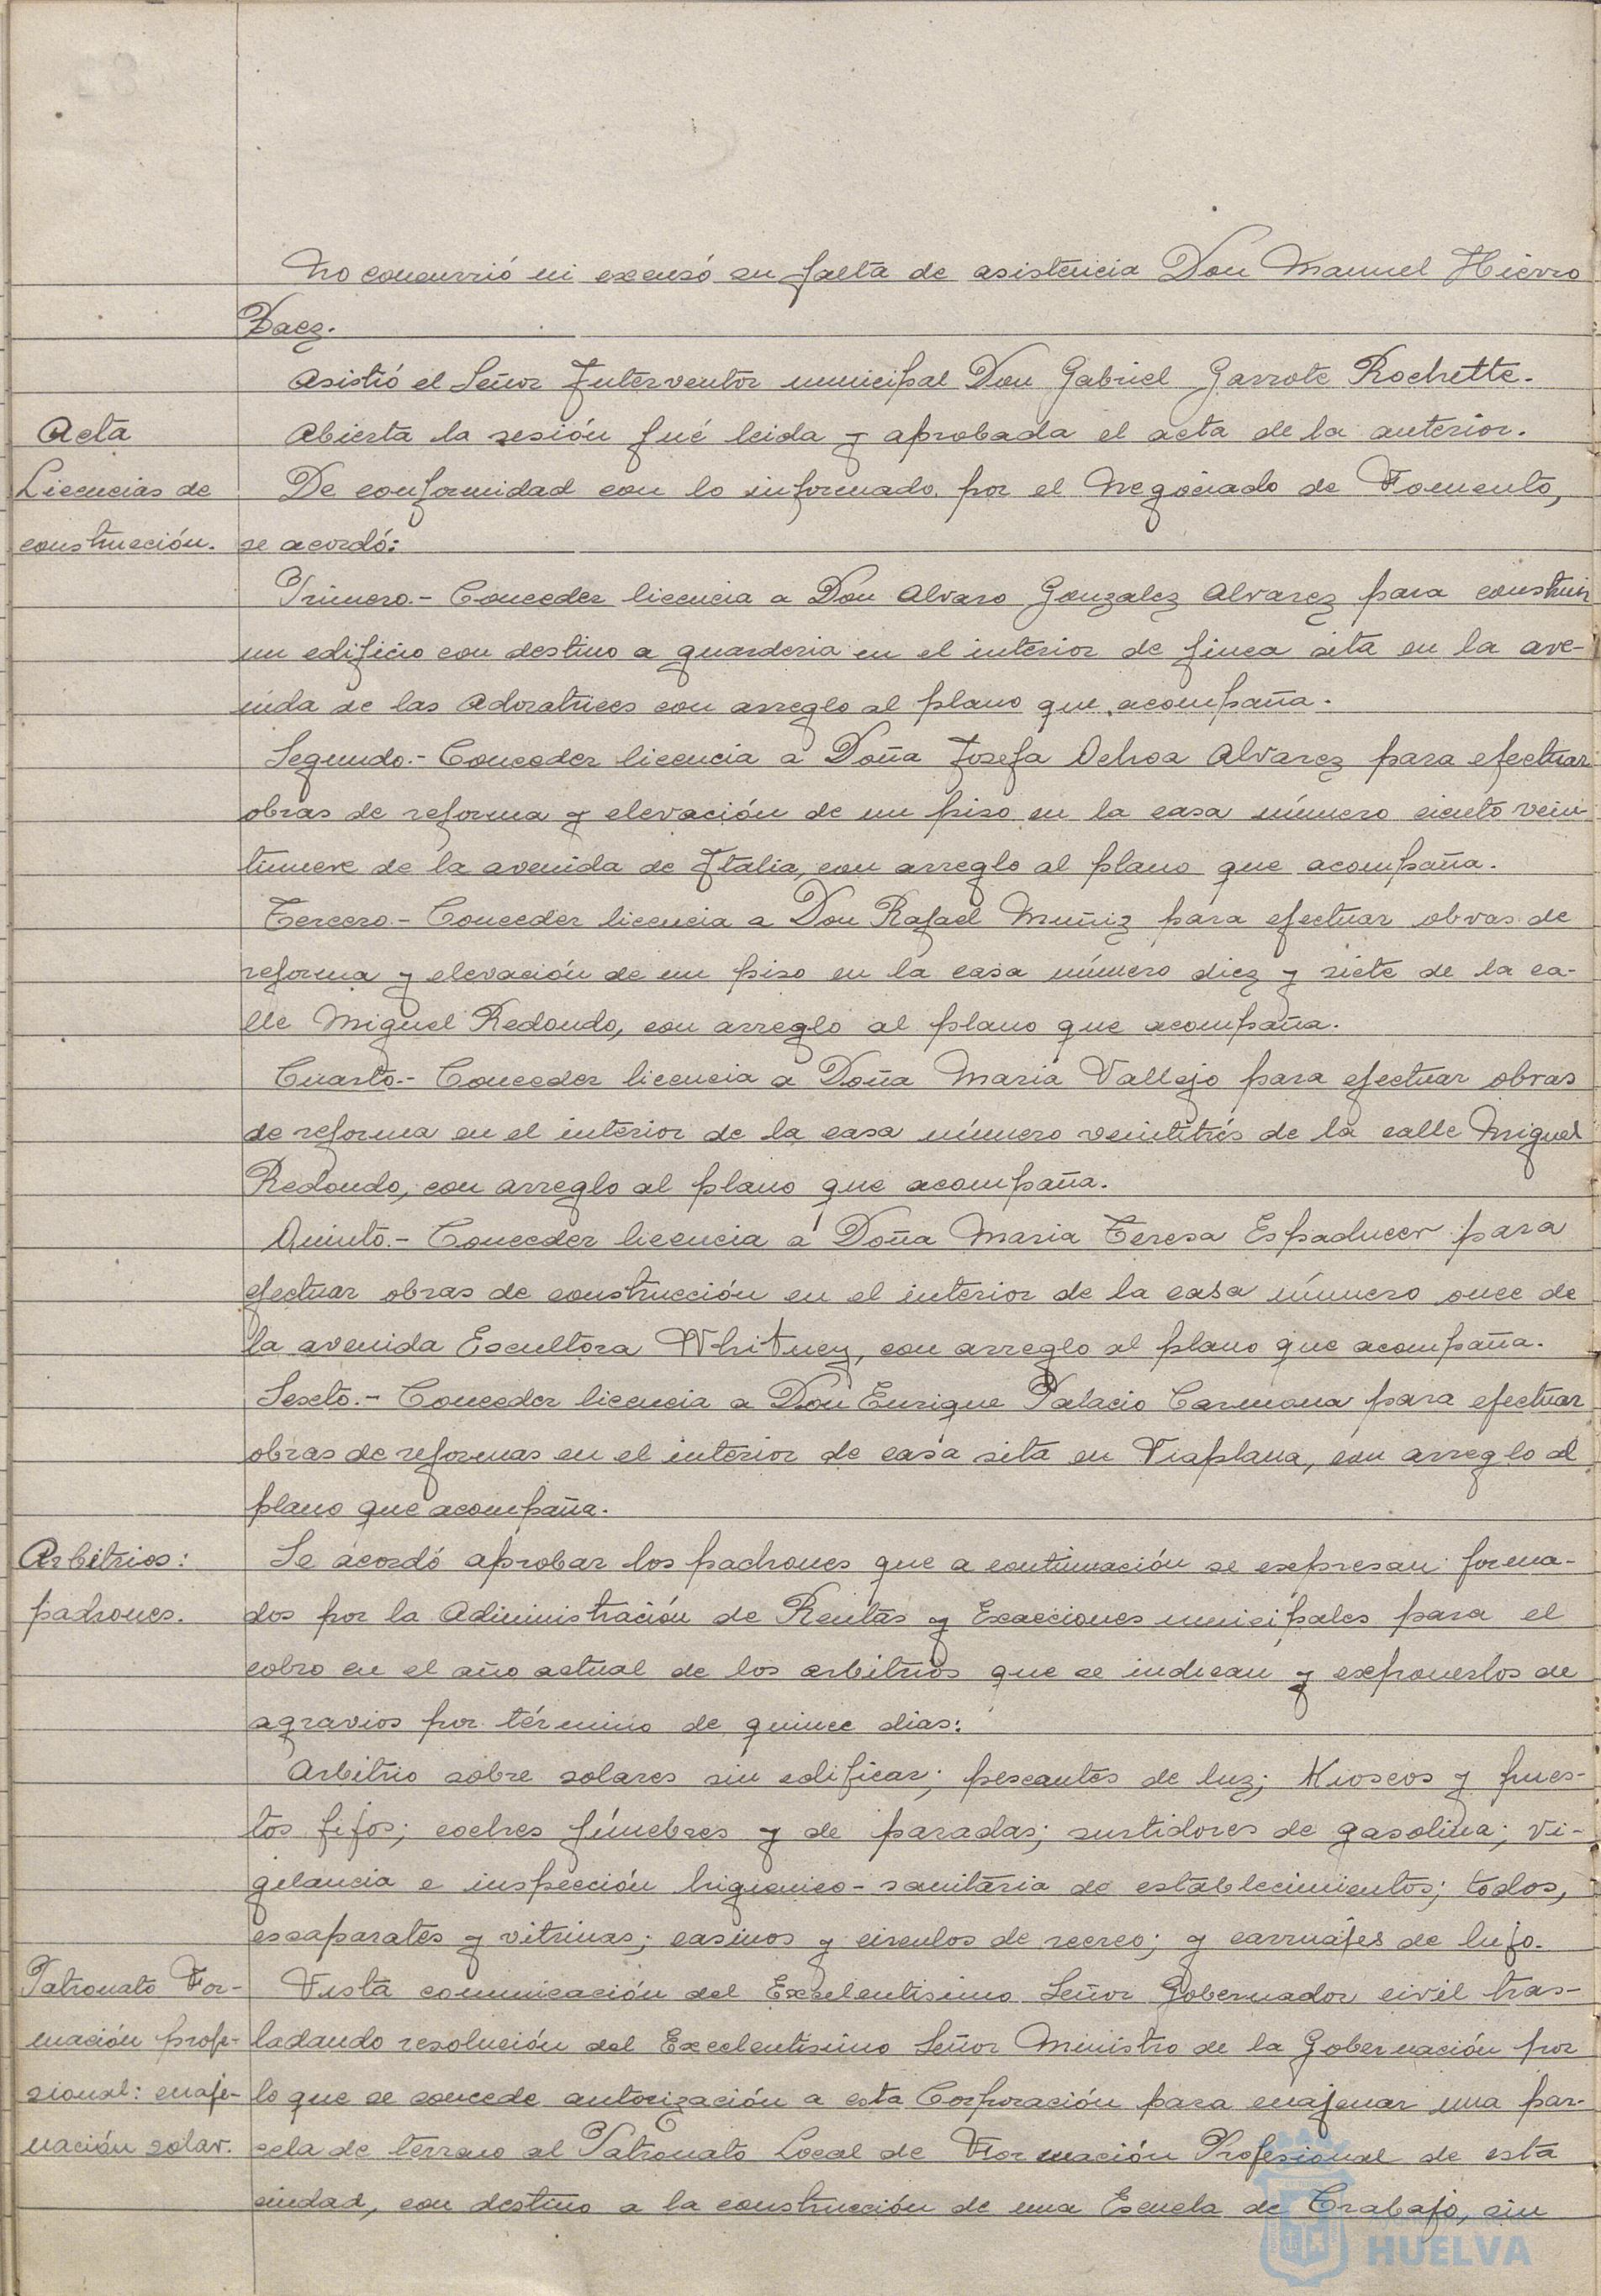 No concurrió ni excusó su falta de asistencia Don Manuel Hierro
Baez.
Asistió el Señor Interventor municipal Don Gabriel Garrote Rochette.
Acta
Abierta la sesión fué leida y aprobada el acta de la anterior.
Licencias de
construcción.
De conformidad con lo informado por el Negociado de Fomento,
se acordó:
Primero.- Conceder licencia a Don Alvaro Gonzalez Alvarez para construir
un edificio con destino a guarderia en el interior de finca sita en la ave-
nida de las Adoratrices con arreglo al plano que acompaña.
Segundo.- Conceder licencia a Doña Josefa Ochoa Alvarez para efectuar
obras de reforma y elevación de un piso en la casa número ciento vein-
tinueve de la avenida de Italia, con arreglo al plano que acompaña.
Tercero.- Conceder licencia a Don Rafael Muñiz para efectuar obras de
reforma y elevación de un piso en la casa número diez y siete de la ca-
lle Miguel Redondo, con arreglo al plano que acompaña.
Cuarto.- Conceder licencia a Doña Maria Vallejo para efectuar obras
de reforma en el interior de la casa número veintitrés de la calle Miguel
Redondo, con arreglo al plano que acompaña.
Quinto.- Conceder licencia a Doña Maria Teresa Espaducer para
efectuar obras de construcción en el interior de la casa número once de
la avenida Escultora Whitney, con arreglo al plano que acompaña.
Sexto.- Conceder licencia a Don Enrique Palacio Carmona para efectuar
obras de reformas en el interior de casa sita en Viaplana, con arreglo al
plano que acompaña.
Arbitrios:
padrones.
Se acordó aprobar los padrones que a continuación se expresan forma-
dos por la Administración de Rentas y Exacciones municipales para el
cobro en el año actual de los arbitrios que se indican y exponerlos de
agravios por término de quince dias:
Arbitrio sobre solares sin edificar; pescantes de luz; Kioscos y pues-
tos fijos; coches fúnebres y de paradas; surtidores de gasolina; vi-
gilancia e inspección higienico-sanitaria de establecimientos; todos,
escaparates y vitrinas; casinos y circulos de recreo; y carruajes de lujo.
Patronato For-
mación profe-
sional: enaje-
nación solar.
Vista comunicación del Excelentisimo Señor Gobernador civil tras-
ladando resolución del Excelentisimo Señor Ministro de la Gobernación por
lo que se concede autorización a esta Corporación para enajenar una par-
cela de terreno al Patronato Local de Formación Profesional de esta
ciudad, con destino a la construcción de una Escuela de Trabajo, sin
HUELVA